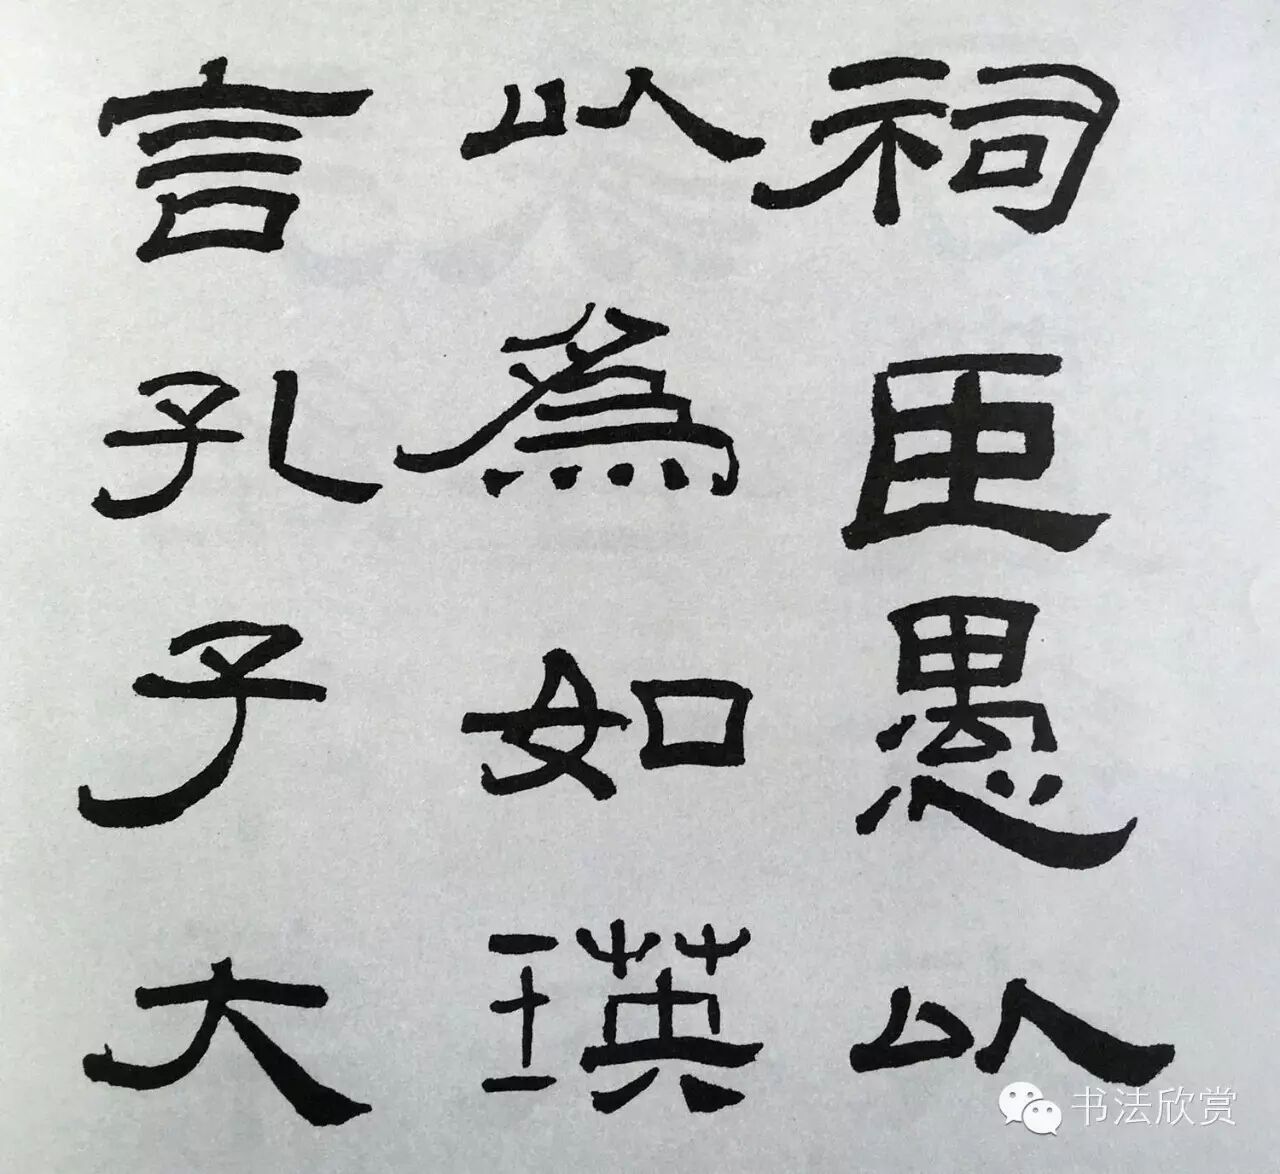 祠臣愚以
以為如瑛
言孔子大
书法欣赏